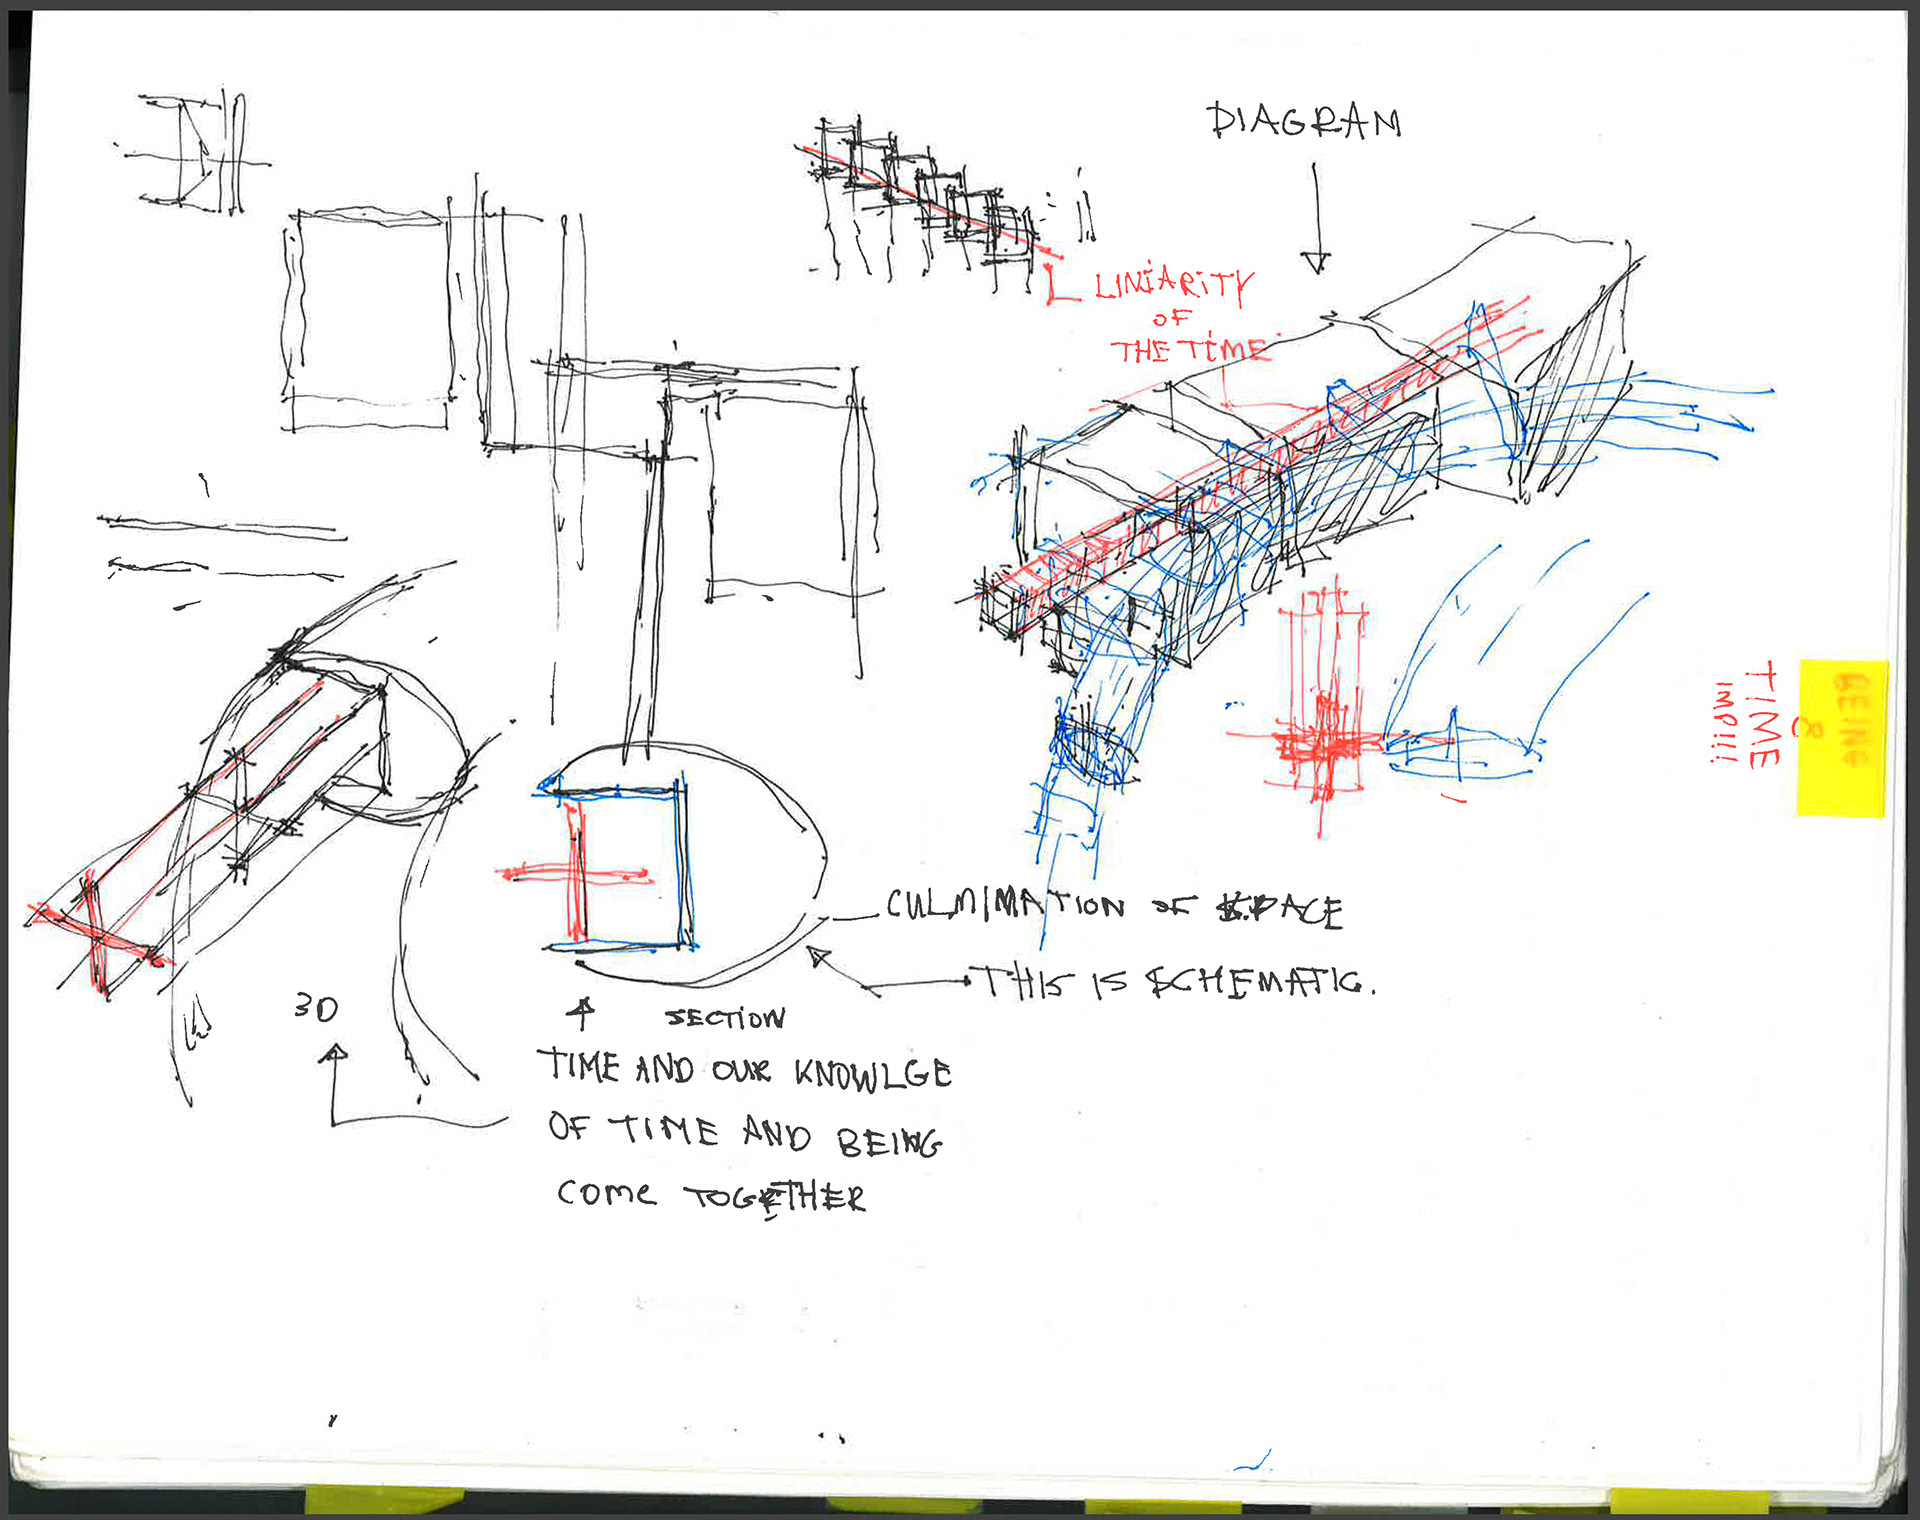 DIAGRAM
LINIARITY
OF
THE TIME
TIME
IMP!!!
&
BEING
CULMIMATION OF SPACE
THIS IS SCHEMATIC.
3D
SECTION
TIME AND OUR KNOWLGE
OF TIME AND BEING
COME TOGETHER